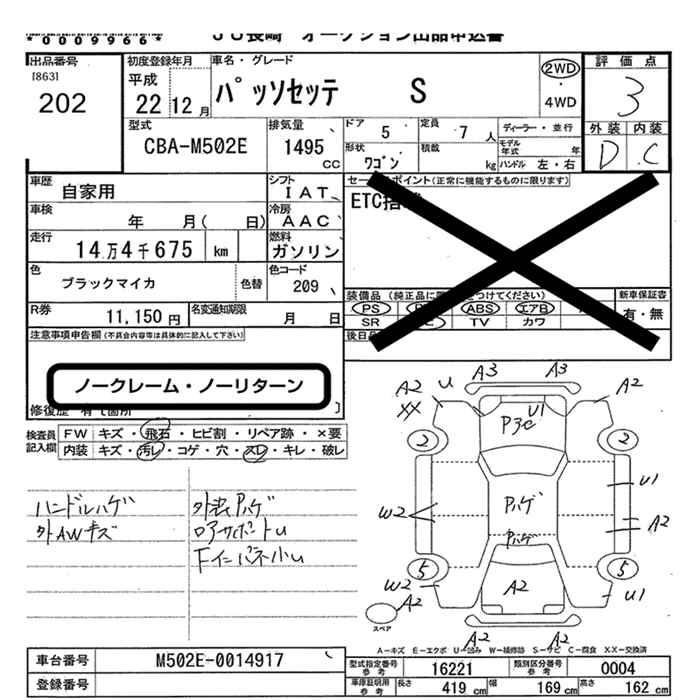 *0009966* JU長崎 オークション出品申込書
出品番号 [863] 202
初度登録年月 平成 22年 12月
車名・グレード パッソセッテ S
2WD・4WD
評価点 3
外装 D 内装 C
型式 CBA-M502E
排気量 1495 CC
ドア 5
定員 7人
ディーラー・並行
形状 ワゴン
積載 kg
モデル年式 年
ハンドル 左・右
車歴 自家用
シフト IAT
セールスポイント(正常に機能するものに限ります)
ETC
車検 年 月( 日)
冷房 AAC
走行 14万4千675 km
燃料 ガソリン
色 ブラックマイカ 色替
色コード 209
装備品
新車保証書 有・無
PS ABS エアB
SR TV カワ
R券 11,150円
名変通知期限 月 日
注意事項申告欄(不具合内容等は具体的に記入して下さい)
ノークレーム・ノーリターン
修復歴
検査員記入欄
FW キズ・飛石・ヒビ割・リペア跡・×要
内装 キズ・汚レ・コゲ・穴・スレ・キレ・破レ
ハンドルハゲ
外AWキズ
外装Pハゲ
ロアサポートU
Fインパネ小U
A2 U A3 A3 A2
XX U1
P3C
2 2
Pハゲ
U1
W2
A2
Pハゲ
5 5
W2 A2 U1
A2
スペア
A2 A2
A-キズ E-エクボ U-凹み W-補修跡 S-サビ C-腐食 XX-交換済
車台番号 M502E-0014917
型式指定番号 参考 16221
類別区分番号 参考 0004
登録番号
車庫証明用 参考 長さ 419 cm 幅 169 cm 高さ 162 cm